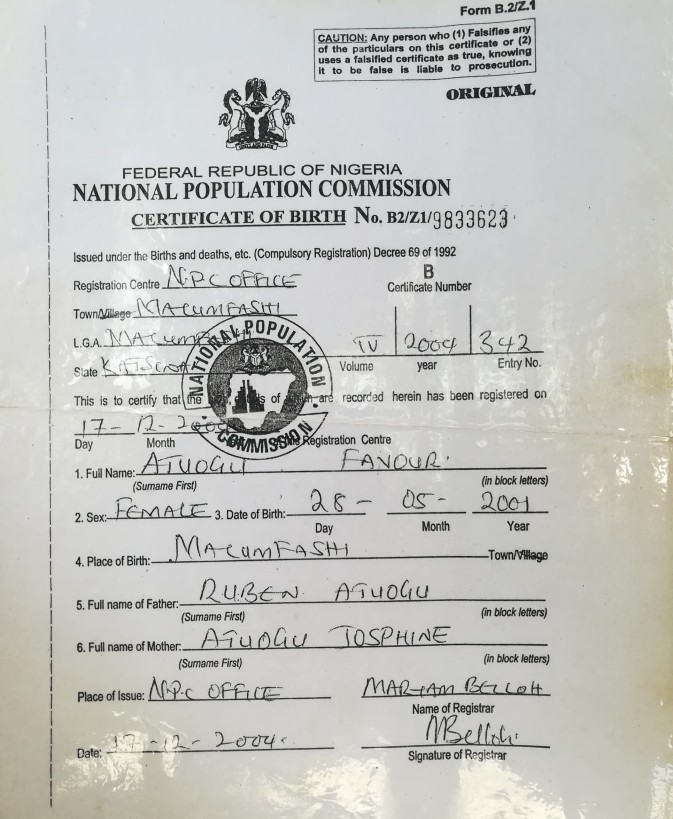 Form B.2/Z.1
CAUTION: Any person who (1) Falsifies any
of the particulars on this certificate or (2)
uses a falsified certificate as true, knowing
it to be false is liable to prosecution.
ORIGINAL
FEDERAL REPUBLIC OF NIGERIA
NATIONAL POPULATION COMMISSION
CERTIFICATE OF BIRTH No. B2/Z1/9833623
Issued under the Births and deaths, etc. (Compulsory Registration) Decree 69 of 1992
Registration Centre N.P.C OFFICE
B
Certificate Number
Town/Village MALUMFASHI
L.G.A. MALUMFASHI
State
IV 2004 342
Volume year Entry No.
NATIONAL POPULATION COMMISSION
This is to certify that the of are recorded herein has been registered on
17-12-2004
Day Month Registration Centre
1. Full Name: ATUOGU FAVOUR.
(Surname First) (in block letters)
2. Sex: FEMALE 3. Date of Birth: 28 - 05 - 2001
Day Month Year
4. Place of Birth: MALUMFASHI Town/Village
5. Full name of Father: RUBEN ATUOGU
(Surname First) (in block letters)
6. Full name of Mother: ATUOGU JOSPHINE
(Surname First) (in block letters)
Place of Issue: N.P.C OFFICE MARYAM BELLOH
Name of Registrar
Date: 17-12-2004. MBelloh.
Signature of Registrar